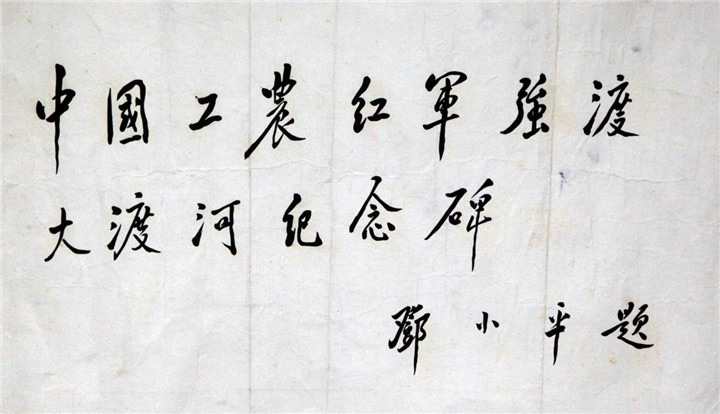 中國工農红軍強渡
大渡河纪念碑
鄧小平题